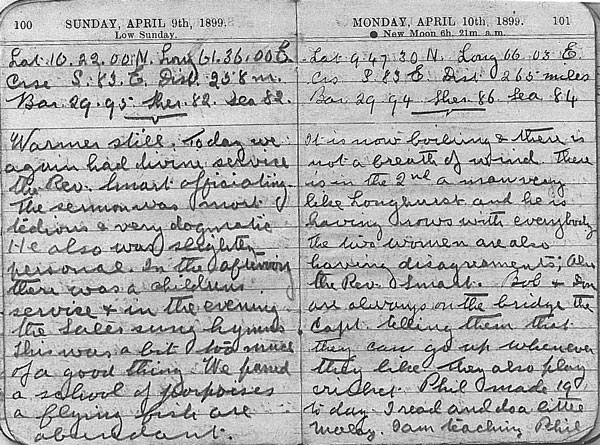 100 SUNDAY, APRIL 9th, 1899.
Low Sunday.
Lat 10.22.00 N. Long 61.36.00 E.
Crse S. 83 E. Dist 258 m.
Bar. 29.95 Ther. 82. Sea 82.
Warmer still. Today we
again had divine service
the Rev. Smart officiating.
The sermon was most
tedious & very dogmatic
He also was slightly
personal. In the afternoon
there was a childrens
service & in the evening
the ladies sung hymns
This was a bit too much
of a good thing. We passed
a school of porpoises
& flying fish are
abundant.
MONDAY, APRIL 10th, 1899. 101
● New Moon 6h. 21m. a.m.
Lat. 9.47.30 N. Long 66.03 E.
Crs S. 83 E Dist 265 miles
Bar. 29 94 Ther 86 Sea 84
It is now boiling & there is
not a breath of wind. There
is in the 2nd a man very
like Longhurst and he is
having rows with everybody
the two women are also
having disagreements, Also
the Rev. Smart. Bob &
are always on the bridge the
Capt. telling them that
they can go up whenever
they like. They also play
cricket. Phil made 19
to day. I read and do a little
I am teaching Phil